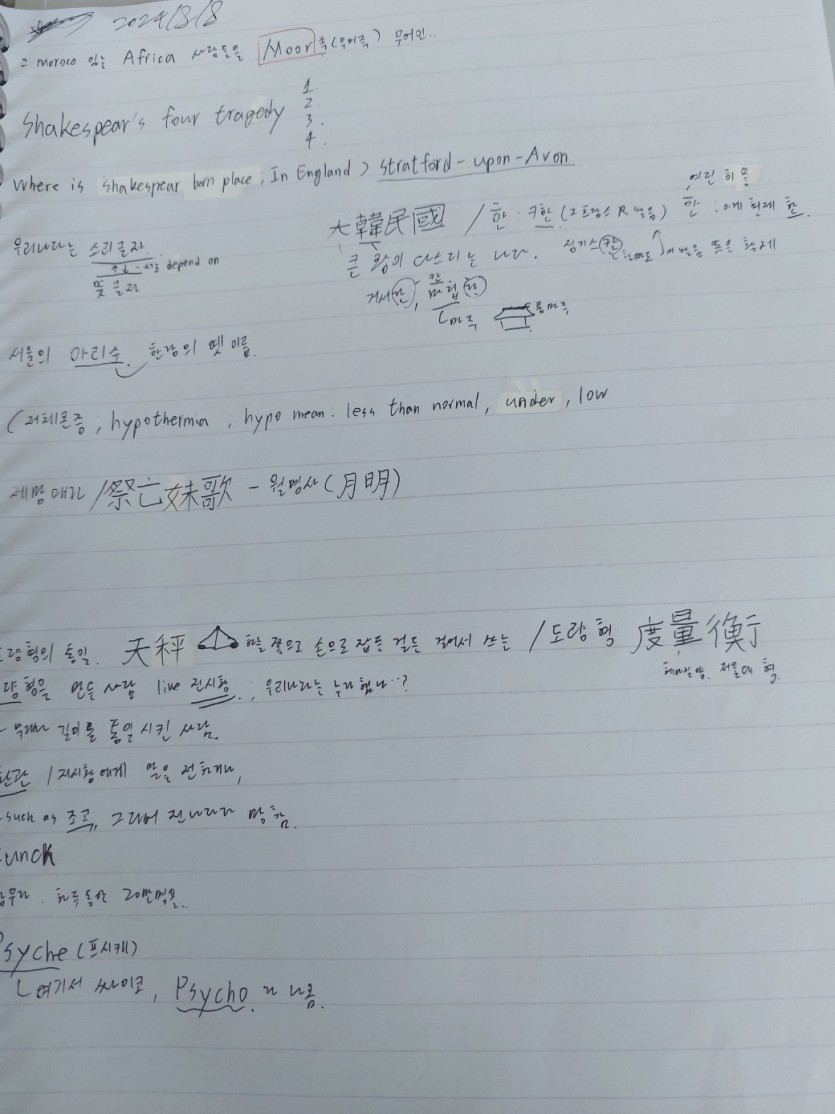 2024/8/8
Moroco 있는 Africa 사람들을 Moor족(무어족) 무어인..
Shakespear's four tragedy 1. 2. 3. 4.
Where is shakespear born place; In England > stratford-upon-Avon
大韓民國 / 한 : 크한 (R 발음) 한 : 이게 현재 한.
우리나라는 소리글자
↑↓ - 서로 depend on
뜻글자
큰 왕이 다스리는 나라. 징기스칸
거서한, 마립한
서울의 아리수. 한강의 옛 이름.
(저체온증, hypothermia, hypo mean. less than normal, under, low
제망매가 / 祭亡妹歌 - 월명사(月明)
도량형의 통일. 天秤 한 쪽으로 손으로 잡든 걸든 걸어서 쓰는 / 도량형 度量衡
헤아릴 량. 저울대 형.
량형을 만든 사람 live 진시황. ; 우리나라는 누가 했나..?
무게와 길이를 통일 시킨 사람.
환관 / 진시황에게 말을 전하거나,
such as 조고, 그리하여 진나라가 망함.
unck
하루동안 20만명을..
Psyche (프시케)
ㄴ 여기서 싸이코, Psycho가 나옴.